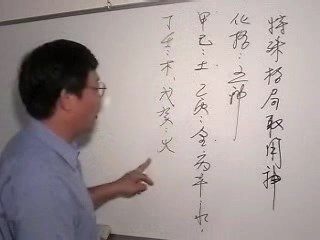 特殊格局取用神
化格: 神
甲己:土 乙庚:金 丙辛:水.
丁壬:木, 戊癸:火